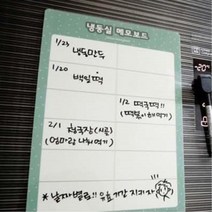 냉동실 메모보드
1/23 냉동만두
1/20
백일떡
1/2 떡국떡!!
(떡볶이 해먹기)
2/1 청국장 (시골)
(엄마랑 나눠먹기)
* 날짜별로!! 유통기한 지키자
-20°